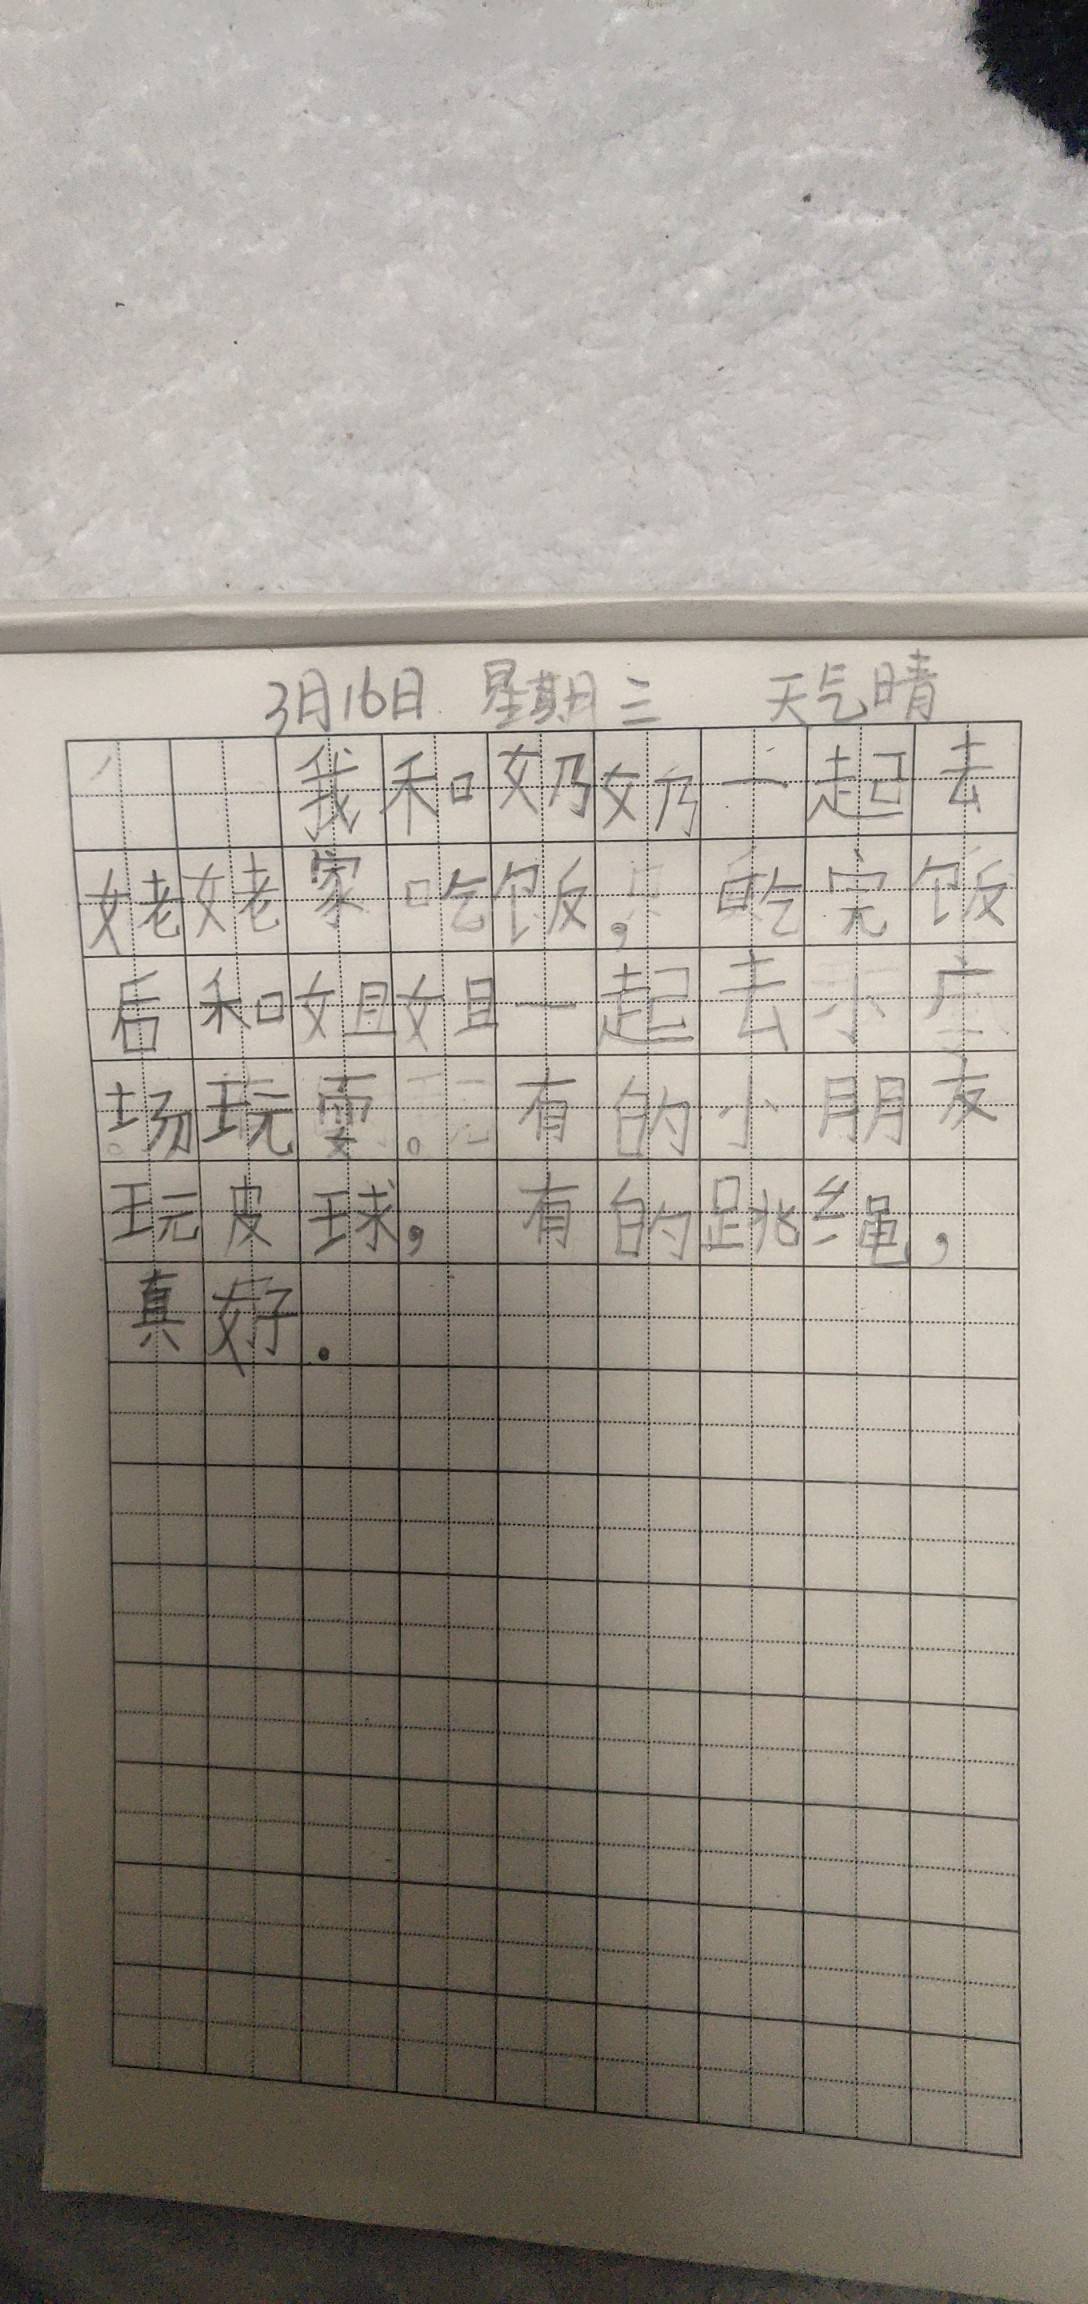 3月16日 星期三 天气晴
我和奶奶一起去
姥姥家吃饭，吃完饭
后和姐姐一起去小广
场玩耍。有的小朋友
玩皮球，有的跳绳，
真好.